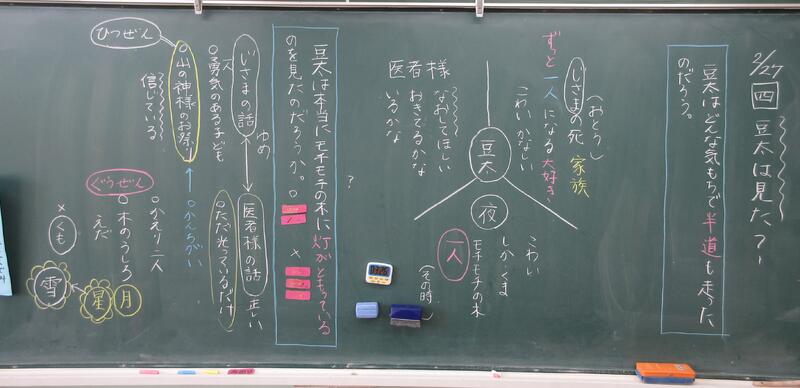 2/27
四 豆太は見た?
豆太はどんな気もちで半道も走った
のだろう。
(おとう)
じさまの死 家族
こわい かなしい
ずっと一人になる 大好き
医者様
なおしてほしい
おきてるかな
いるかな
豆太
夜
こわい
しか くま
モチモチの木
一人
(その時
?
豆太は本当にモチモチの木に灯がともっている
のを見たのだろうか。
○
×
じさまの話
ゆめ
医者様の話
正しい
一人
○勇気のある子ども
○ただ光っているだけ
○山の神様のお祭り
○かんちがい
信じている
ひつぜん
ぐうぜん
○かえり 二人
○木のうしろ
えだ
月
星
雪
×
くも